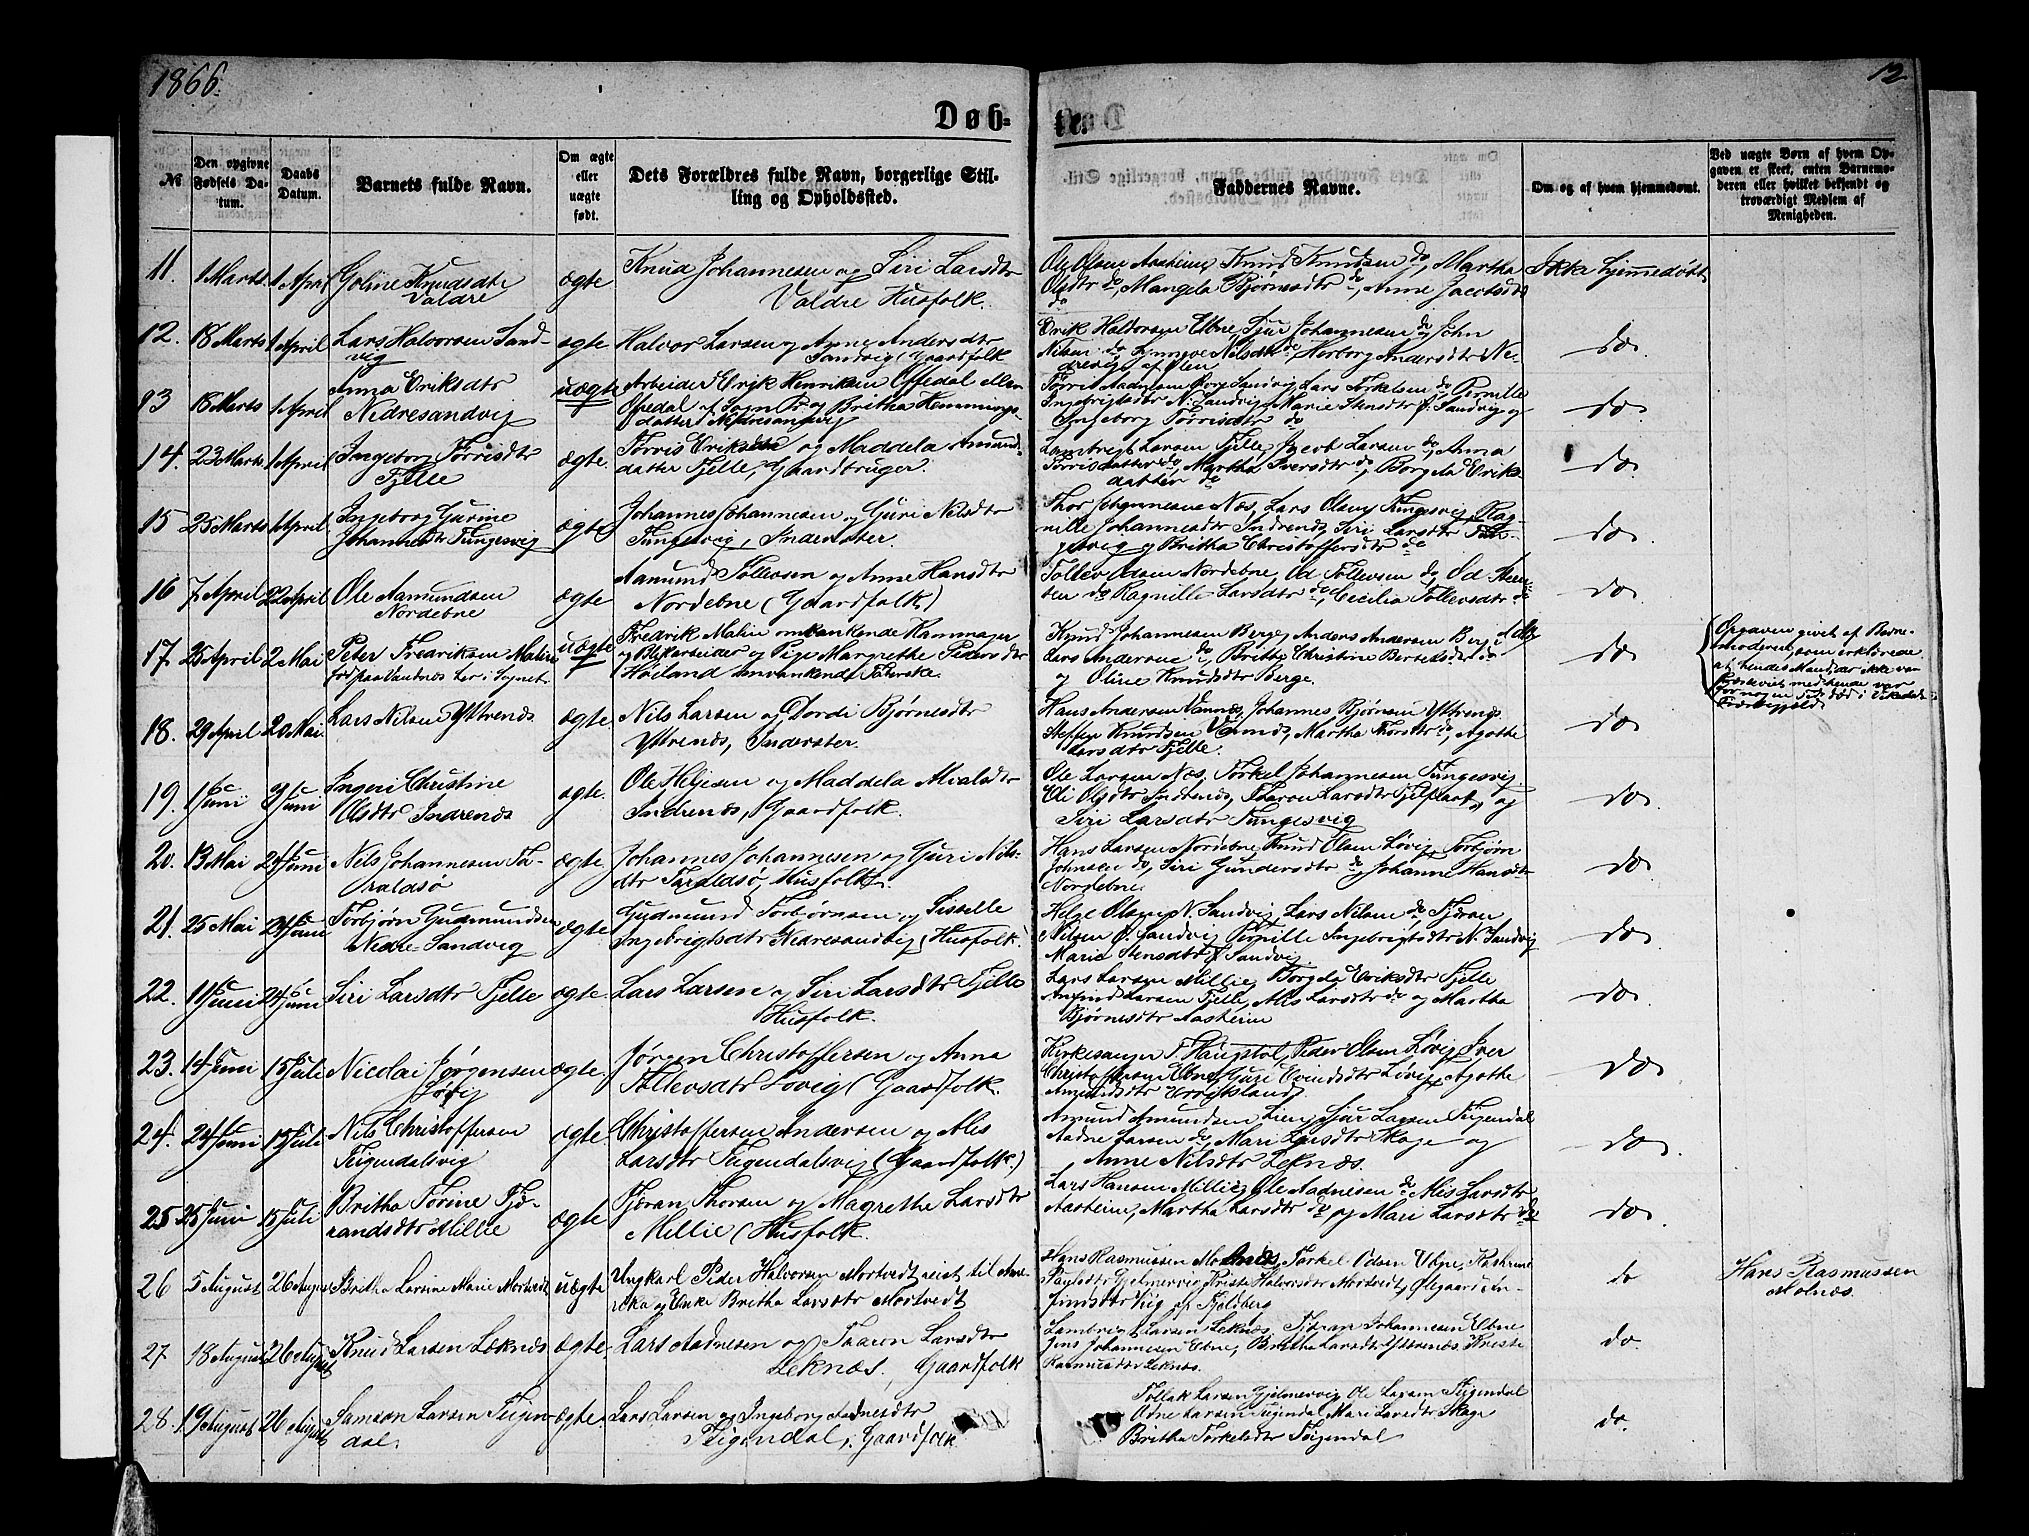 1866.
12
Døb-
te.
№
Den opgivne Fødsels Da-tum.
Daabs Datum.
Barnets fulde Navn.
Om ægte eller uægte født.
Dets Forældres fulde Navn, borgerlige Stil-
ling og Opholdssted.
Faddernes Navne.
Om og af hvem hjemmedøbt.
Ved uægte Børn af hvem Op-
gaven er skeet, enten Barnemo-
deren eller hvilket bekjendt og
troværdigt Medlem af
Menigheden.
11. 1 Marts 1 April Goline Knudsdtr
Valdre
ægte
Knud Johannesen og Siri Larsdtr
Valdre Husfolk.
Ole Olsen Aasheim, Knud Knudsen do, Martha
Olsdtr do, Mangela Bjørnsdtr do, Anne Jacobsdtr
do
Ikke hjemmedøbt
12. 18 Marts 1 April Lars Halvorsen Sand-
vig
ægte
Halvor Larsen og Anne Andersdtr
Sandvig (Gaardfolk
Erik Haldorsen Ebne, Sjur Johannesen do, John
Nilsen do, Synneve Nilsdtr do, Herborg Andersdtr Ne-
af Ølen
do
13 18 Marts 1 April Anna Eriksdtr
Nedresandvig
uægte
Arbeider Erik Henriksen Offedal eller
Ofsedal af Sogn Pr og Britha Hemmings-
datter Nedresandvig
Tørris Aadnesen Øvre Sandvig, Lars Torkelsen do, Pernille
Ingebrigtsdtr N. Sandvig, Marie Stensdtr Ø. Sandvig og
Ingeborg Tørrisdtr do
do
14. 23 Marts 1 April Ingeborg Tørrisdtr
Fjelle
ægte.
Tørris Eriksen og Maddela Amund-
datter Fjelle, Gaardbruger.
Lambregt Larsen Fjelle, Jacob Larsen do, Anna
Tørrisdatter do, Martha Iversdtr do, Borgela Erik-
datter do
do
15 25 Marts 1 April Ingeborg Gurine
Johannesdtr Tungesvig
ægte
Johannes Johannesen og Guri Nilsdtr
Tungesvig, Inderster.
Thor Johannesen Næs, Lars Olsen Tungesvig, Rag-
nille Johannesdtr Indrenæs, Siri Larsdtr Tun-
gesvig og Britha Christoffersdtr do
do
16 7 April 22 April Ole Aamundsen
Nordebne
ægte
Aamund Tollevsen og Anne Hansdtr
Nordebne (Gaardfolk)
Tollev Odsen Nordebne, Od Tollevsen do, Od
do Ragnille Larsdtr do, Cecilia Tollevsdtr do
do
17. 25 April 2 Mai Peter Fredriksen Malin
født paa Vandnæs her i Sognet.
uægte
Fredrik Malin omvankende Kammager
og Blikarbeider og Pige Margrethe Pedersdtr
Høiland omvankende Taterske.
Knud Johannesen Berge, Anders Andersen Berge
Lars Andersen do, Britha Christine Bertelsdtr do
og Oline Knudsdtr Berge.
do
Opgaven givet af Barne-
moderen, som erklærede
at hendes Mand, der ikke var
med hende var
for nogen Tid død i Vikedals
Præstegjeld.
18. 29 April 20 Mai Lars Nilsen Yttrenæs
ægte.
Nils Larsen og Dordi Bjørnesdtr
Yttrenæs, Inderster.
Hans Andersen Vannes, Johannes Bjørnsen Yttrenæs
Steffen Knudsen Vannes, Martha Thorsdtr do, Agathe
Larsdtr Fjelle.
do
19. 1 Juni 3 Juni Ingeri Christine
Olsdtr Indrenæs
ægte.
Ole Heljesen og Maddela Alvalsdtr
Indrenæs, Gaardfolk.
Ole Larsen Næs, Torkel Johannesen Tungesvig
Eli Olsdtr Indrenæs, Taaron Larsdtr og
Siri Larsdtr Tungesvig
do
20. 13 Mai 24 Juni Nils Johannesen Ta-
raldsø
ægte
Johannes Johannesen og Guri Nils-
dtr Taraldsø, Husfolk.
Hans Larsen Nordebne, Knud Olsen Løvig, Torbjørn
Johnsen do, Siri Gundersdtr do, Johanne Hansdtr
Nordebne.
do
21. 25 Mai 24 Juni Torbjørn Gudmundsen
Nedre-Sandvig
ægte
Gudmund Torbørnsen og Sisselle
Ingebrigtsdtr Nedresandvig, (Husfolk.
Helge Olsen N. Sandvig, Lars Nilsen do, Fjøran
Nilsen Ø. Sandvig, Pernille Ingebrigtsdtr N. Sandvig
Marie Stensdtr Ø. Sandvig.
do
22. 11 Juni 24 Juni Siri Larsdtr Fjelle
ægte.
Lars Larsen og Siri Larsdtr Fjelle
Husfolk.
Lars Larsen Millie, Borgela Eriksdtr Fjelle
Amund Larsen Fjelle, Alis Larsdtr do og Martha
Bjørnesdtr Aasheim
do
23. 14 Juni 15 Juli Nicolai Jørgensen
Løvig
ægte.
Jørgen Christoffersen og Anna
Tollevsdtr Løvig (Gaardfolk.
Kirkesanger T. Haugstol, Peder Olsen Løvig, Iver
Christoffersen Ebne, Guri Eivindsdtr Løvig, Agathe
Amundsdtr
do
24. 24 Juni 15 Juli Nils Christoffersen
Teigendalsvig
ægte.
Christoffersen Andersen og Alis
Larsdtr Teigendalsvig (Gaardfolk.)
Amund Amundsen Lien, Sjur Larsen Teigendal
Aadne Larsen do, Mari Larsdtr Skage og
Anne Nilsdtr Leknæs.
do
25 25 Juni 15 Juli Britha Tørine Fjø-
randsdtr Millie
ægte
Fjøran Thorsen og Magrethe Larsdtr
Millie (Husfolk.
Lars Hansen Millie, Ole Aadnesen do, Alis Larsdtr
Aasheim, Martha Larsdtr do, og Mari Larsdtr do
do
26 5 August 26 August Britha Larsine Marie Mortvedt
uægte
Ungkarl Peder Halvorsen Mortvedt reist til Ame-
rika og Enke Britha Larsdtr Mortvedt
Hans Rasmussen Molnæs, Torkel Odsen Ebne, Kathrine
Paulsdtr Gjelmervig, Kriste Halvorsdtr Mortvedt, Ølgaard En-
finsdtr Vig af Fjeldberg
do
Hans Rasmussen
Molnæs.
27 18 August 26 August Knud Larsen Leknæs
ægte.
Lars Aadnesen og Taaron Larsdtr
Leknæs, Gaardfolk
Lambregt Larsen Leknæs, Fjøran Johannesen Ebne
Jens Johannesen Ebne, Britha Larsdtr Yttrenæs, Kriste
Rasmusdtr Leknæs.
do
28. 19 August 26 August Samson Larsen Teigen-
dal.
ægte.
Lars Larsen og Ingeborg Aadnesdtr
Teigendal, Gaardfolk
Tollak Larsen Gjelmervig, Ole Larsen Teigendal
Odne Larsen Teigendal, Mari Larsdtr Skage
Britha Torkelsdtr Teigendal
do.